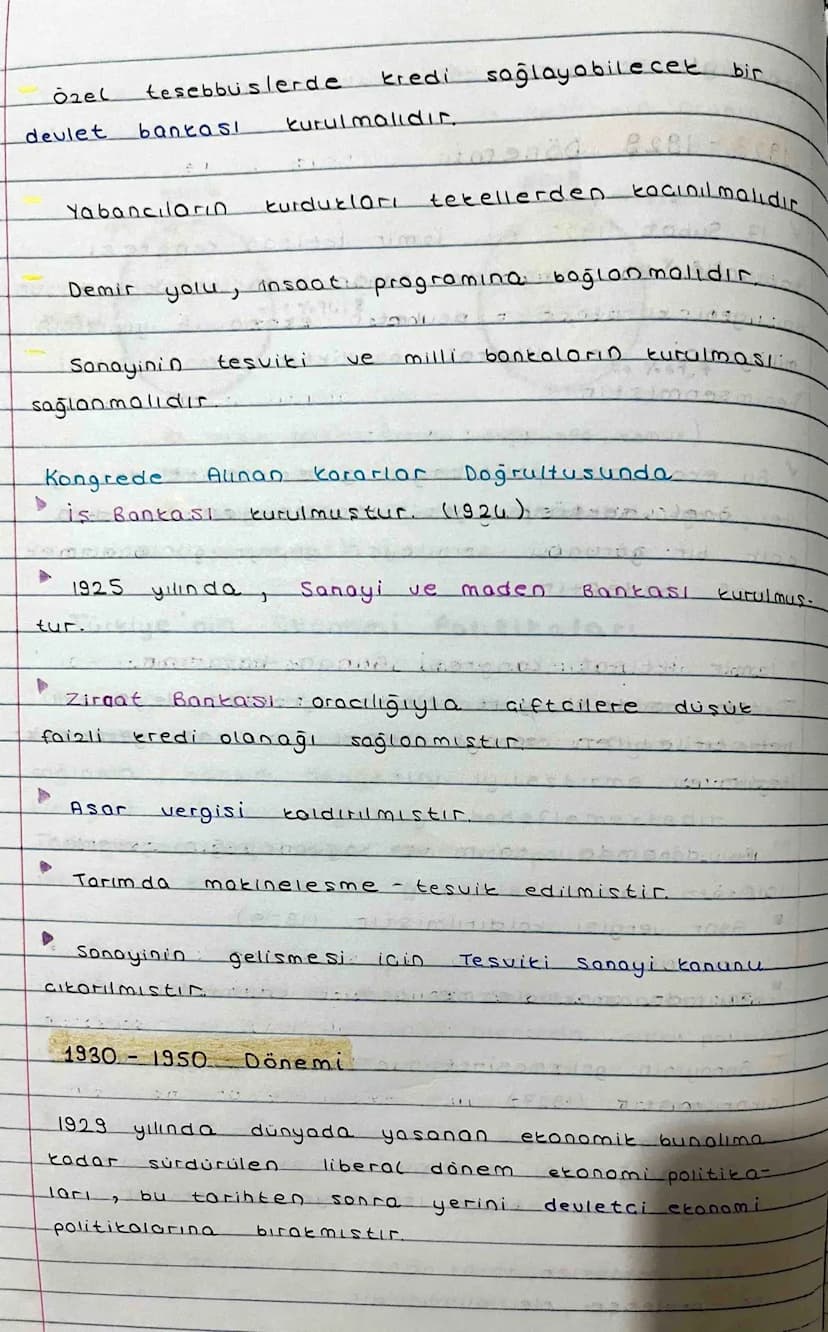 - özel tesebbüslerde kredi sağlayabilecek bir
devlet bankası kurulmalıdır.
- Yabancıların kurdukları tekellerden kacınılmalıdır
- Demir yolu, insaat programına bağlanmalıdır.
- Sanayinin tesviki ve milli bankaların kurulması
sağlanmalıdır.
Kongrede Alınan Kararlar Doğrultusunda
▶ İş Bankası kurulmuştur. (1924)
▶ 1925 yılında, Sanayi ve maden Bankası kurulmuş-
tur.
▶ Ziraat Bankası oracılığıyla çiftçilere düşük
faizli kredi olanağı sağlanmıstır.
▶ Asar vergisi kaldırılmıstır.
▶ Tarımda makinelesme - tesvik edilmistir.
▶ Sanayinin gelismesi için Tesviki Sanayi kanunu
cıkarılmıstır.
1930 - 1950 Dönemi
1929 yılında dünyada yasanan ekonomik bunalıma
kadar sürdürülen liberal dönem ekonomi politika-
ları, bu tarihten sonra yerini devletci ekonomi
politikalarına bırakmıstır.